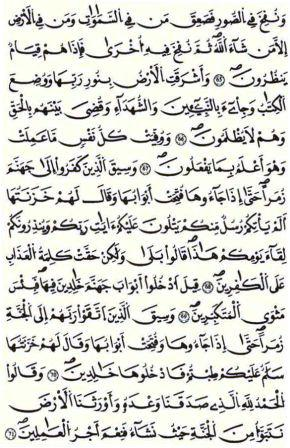 وَنُفِخَ فِى الصُّورِ فَصَعِقَ مَن فِى السَّمَٰوَٰتِ وَمَن فِى الْأَرْضِ
إِلَّا مَن شَآءَ اللَّهُ ثُمَّ نُفِخَ فِيهِ أُخْرَىٰ فَإِذَا هُمْ قِيَامٌ
يَنظُرُونَ وَأَشْرَقَتِ الْأَرْضُ بِنُورِ رَبِّهَا وَوُضِعَ
الْكِتَٰبُ وَجِاْىٓءَ بِالنَّبِيِّينَ وَالشُّهَدَآءِ وَقُضِىَ بَيْنَهُم بِالْحَقِّ
وَهُمْ لَا يُظْلَمُونَ وَوُفِّيَتْ كُلُّ نَفْسٍ مَّا عَمِلَتْ
وَهُوَ أَعْلَمُ بِمَا يَفْعَلُونَ وَسِيقَ الَّذِينَ كَفَرُوا إِلَىٰ جَهَنَّمَ
زُمَرًا حَتَّىٰ إِذَا جَآءُوهَا فُتِحَتْ أَبْوَٰبُهَا وَقَالَ لَهُمْ خَزَنَتُهَا
أَلَمْ يَأْتِكُمْ رُسُلٌ مِّنكُمْ يَتْلُونَ عَلَيْكُمْ ءَايَٰتِ رَبِّكُمْ وَيُنذِرُونَكُمْ
لِقَآءَ يَوْمِكُمْ هَٰذَا قَالُوا بَلَىٰ وَلَٰكِنْ حَقَّتْ كَلِمَةُ الْعَذَابِ
عَلَى الْكَٰفِرِينَ قِيلَ ادْخُلُوا أَبْوَٰبَ جَهَنَّمَ خَٰلِدِينَ فِيهَا فَبِئْسَ
مَثْوَى الْمُتَكَبِّرِينَ وَسِيقَ الَّذِينَ اتَّقَوْا رَبَّهُمْ إِلَى الْجَنَّةِ
زُمَرًا حَتَّىٰ إِذَا جَآءُوهَا وَفُتِحَتْ أَبْوَٰبُهَا وَقَالَ لَهُمْ خَزَنَتُهَا
سَلَٰمٌ عَلَيْكُمْ طِبْتُمْ فَادْخُلُوهَا خَٰلِدِينَ وَقَالُوا
الْحَمْدُ لِلَّهِ الَّذِى صَدَقَنَا وَعْدَهُ وَأَوْرَثَنَا الْأَرْضَ
نَتَبَوَّأُ مِنَ الْجَنَّةِ حَيْثُ نَشَآءُ فَنِعْمَ أَجْرُ الْعَٰمِلِينَ